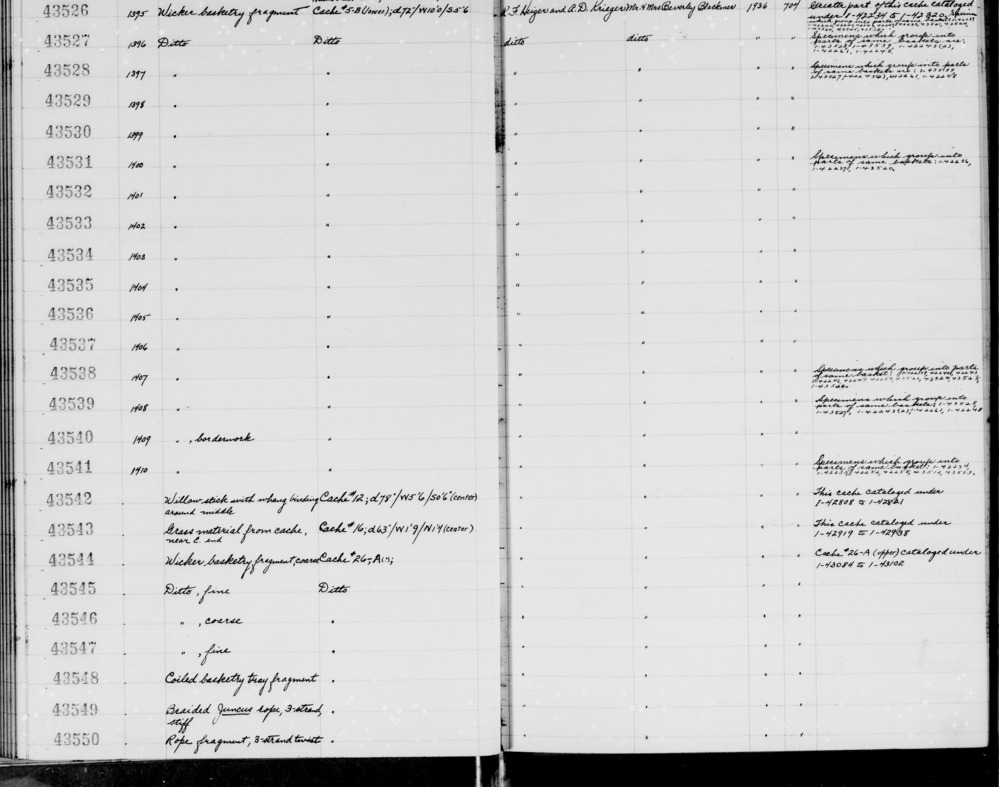 43526 1395 Wicker basketry fragment Cache #5-B (lower); d72"/W10'0/S5'6 R. F. Heizer and A. D. Krieger Mr & Mrs Beverly Blackmer 1936 704 Greater part of this cache cataloged
under
43527 1396 Ditto Ditto ditto ditto " " Specimens which group into
parts of same baskets are:
43528 1397 " " " " " " Specimens which group into parts
of same baskets are:
43529 1398 " " " " " "
43530 1399 " " " " " "
43531 1400 " " " " " " Specimens which group into
parts of same baskets: 1-42236,
1-43520,
43532 1401 " " " " " "
43533 1402 " " " " " "
43534 1403 " " " " " "
43535 1404 " " " " " "
43536 1405 " " " " " "
43537 1406 " " " " " "
43538 1407 " " " " " " Specimens which group into parts
of same basket:
43539 1408 " " " " " " Specimens which group into
parts of same baskets: 1-43528,
43540 1409 " , borderwork " " " " "
43541 1410 " " " " " " Specimens which group into
parts of same basket: 1-42234,
43542 Willow stick with whang binding Cache #12; d78"/W5'6/S0'6 (center) " " " " This cache cataloged under
around middle 1-42808 to 1-42821
43543 Grass material from cache, Cache #16; d63"/W1'9/N1'4 (center) " " " " This cache cataloged under
near C. end 1-42919 to 1-42938
43544 Wicker basketry fragment, coarse Cache #26-A " " " " Cache #26-A (upper) cataloged under
1-43084 to 1-43102
43545 Ditto, fine Ditto " " " "
43546 " , coarse " " " " "
43547 " , fine " " " " "
43548 Coiled basketry tray fragment " " " " "
43549 Braided Juncus rope, 3-strand, " " " " "
stiff
43550 Rope fragment, 3-strand twist " " " " "